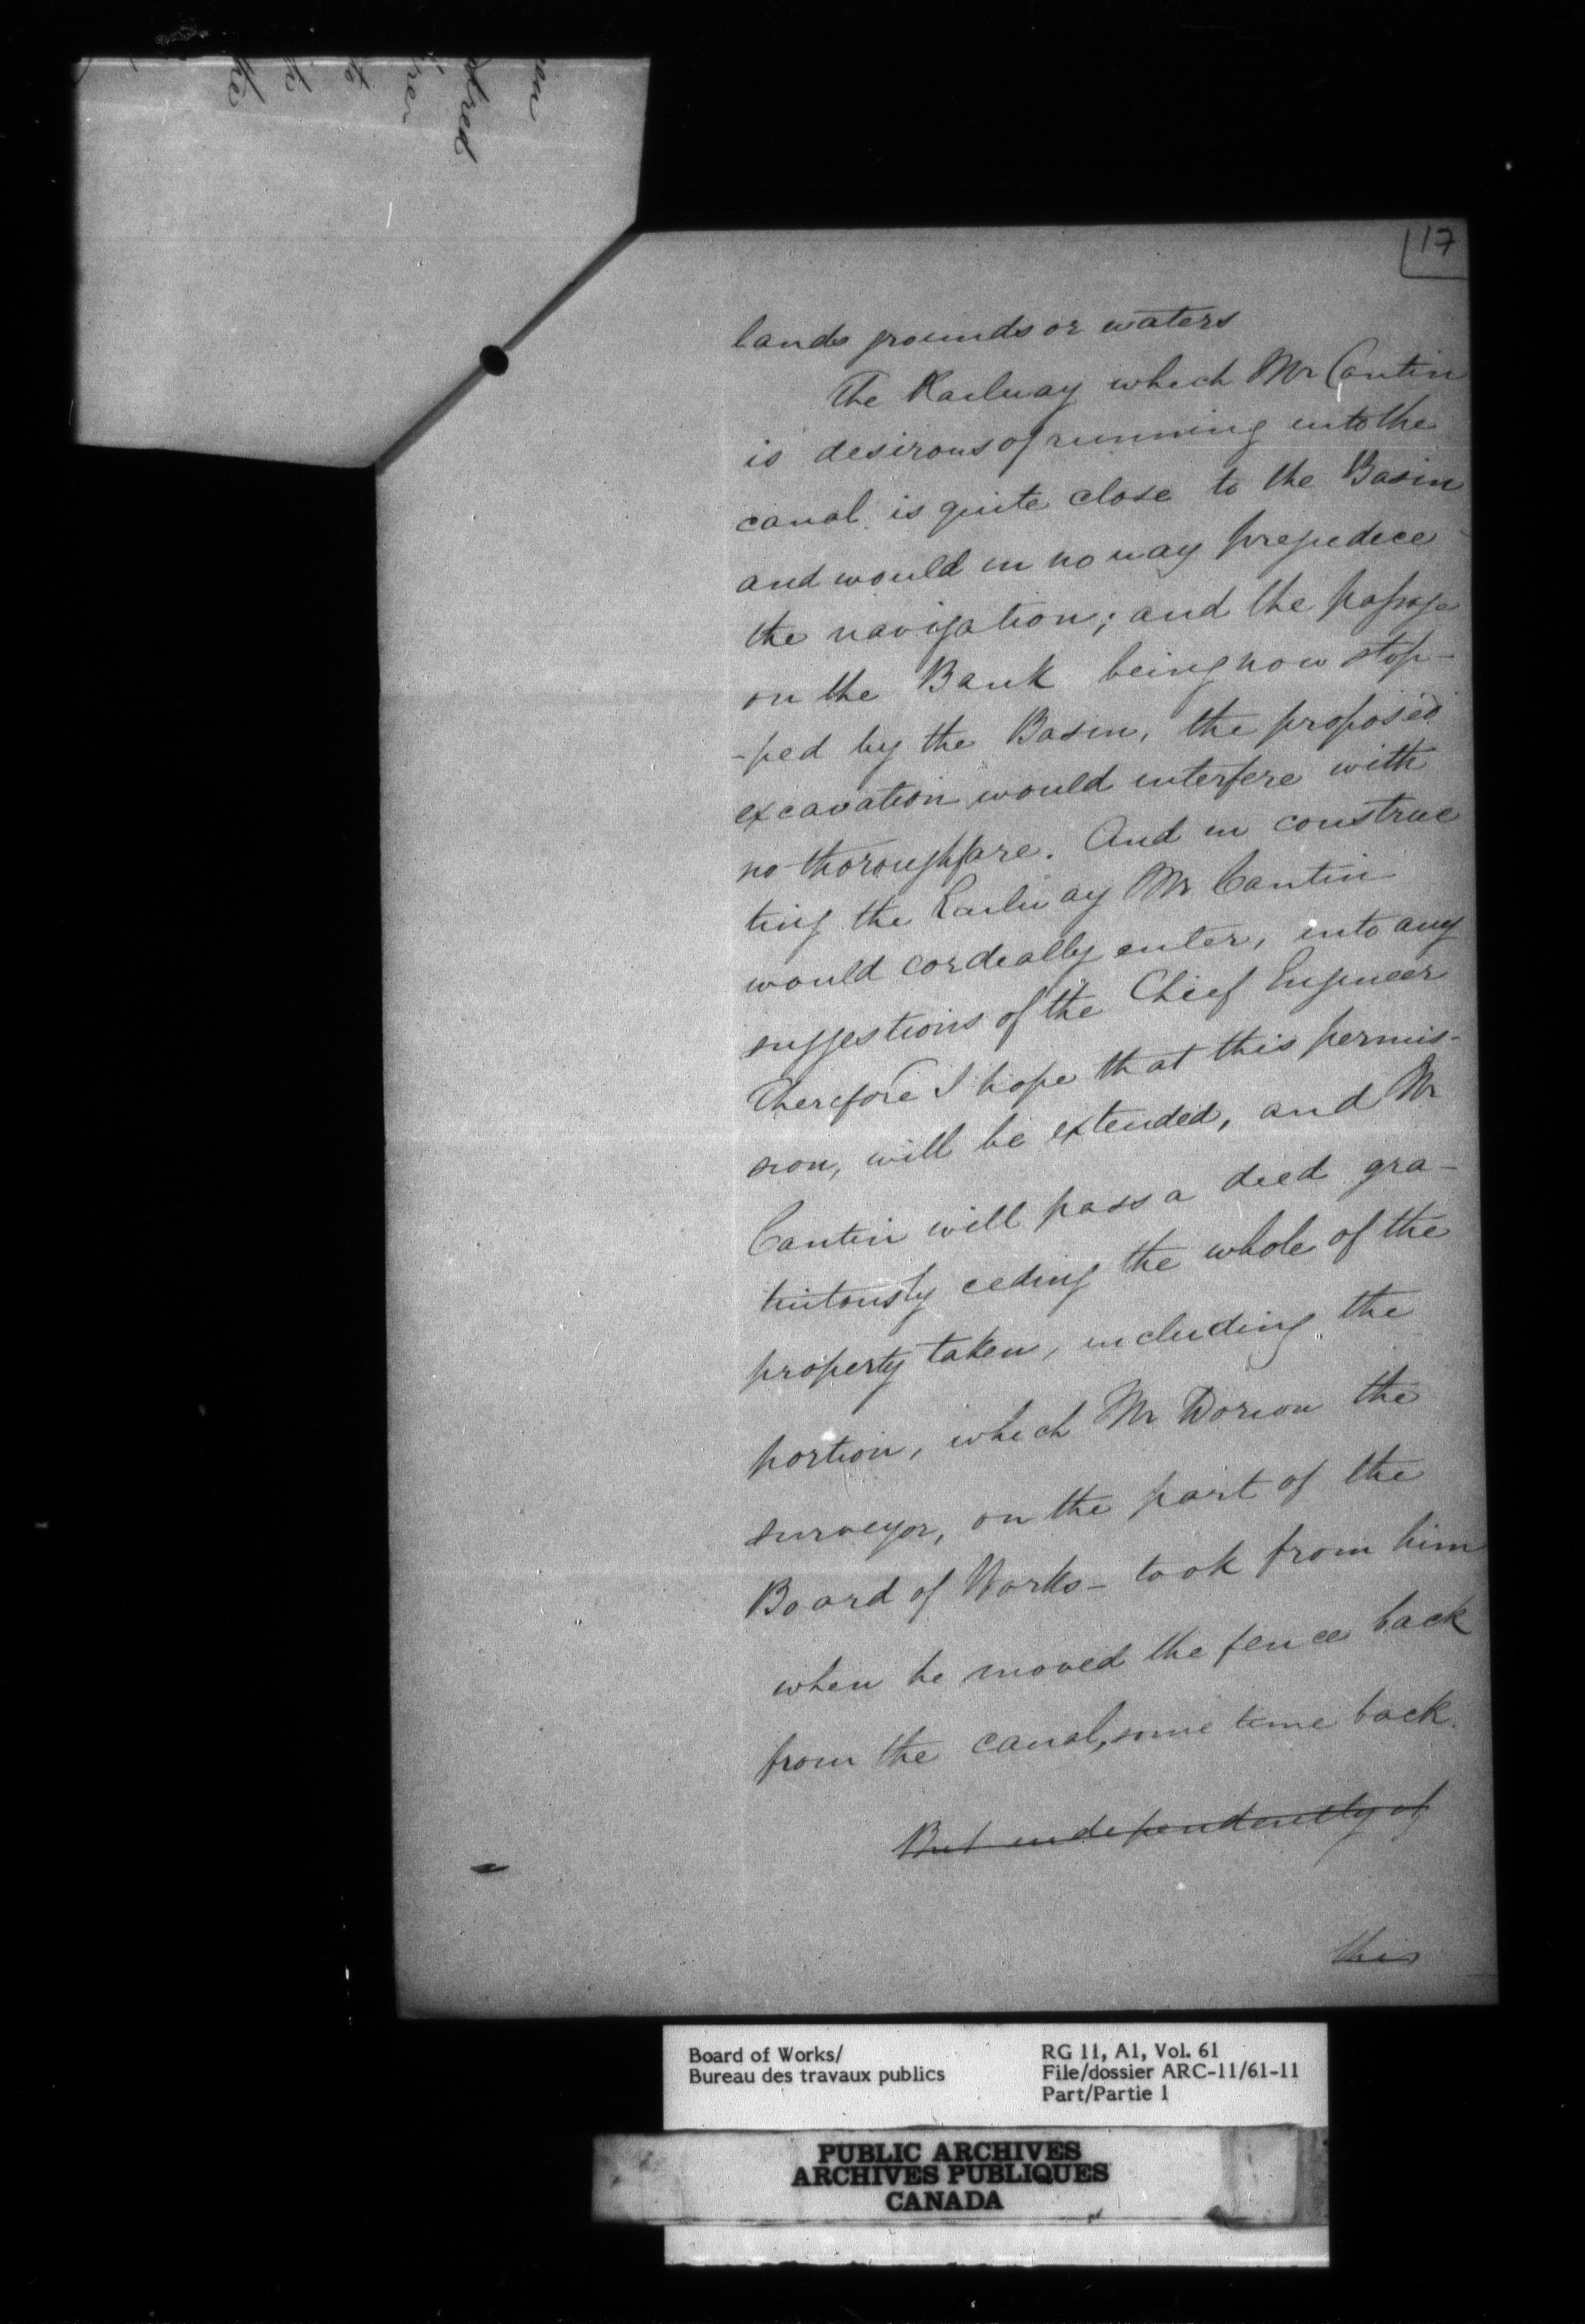 17
lands grounds or waters
The Railway which Mr Cantin
is desirous of running into the
canal is quite close to the Basin
and would in no way prejudice
the navigation; and the passage
on the Bank being now stop-
-ped by the Basin, the proposed
excavation would interfere with
no thoroughfare. And in construc
ting the Railway Mr Cantin
would cordeally enter, into any
suggestions of the Chief Engineer
Therefore I hope that this permis-
sion, will be extended, and Mr
Cantin will pass a deed gra-
tuitously ceding the whole of the
property taken, including the
portion, which Mr Dorion the
surveyor, on the part of the
Board of Works - took from him
when he moved the fence back
from the canal, some time back.
But independently of
this
Board of Works/
Bureau des travaux publics
RG 11, A1, Vol. 61
File/dossier ARC-11/61-11
Part/Partie 1
PUBLIC ARCHIVES
ARCHIVES PUBLIQUES
CANADA